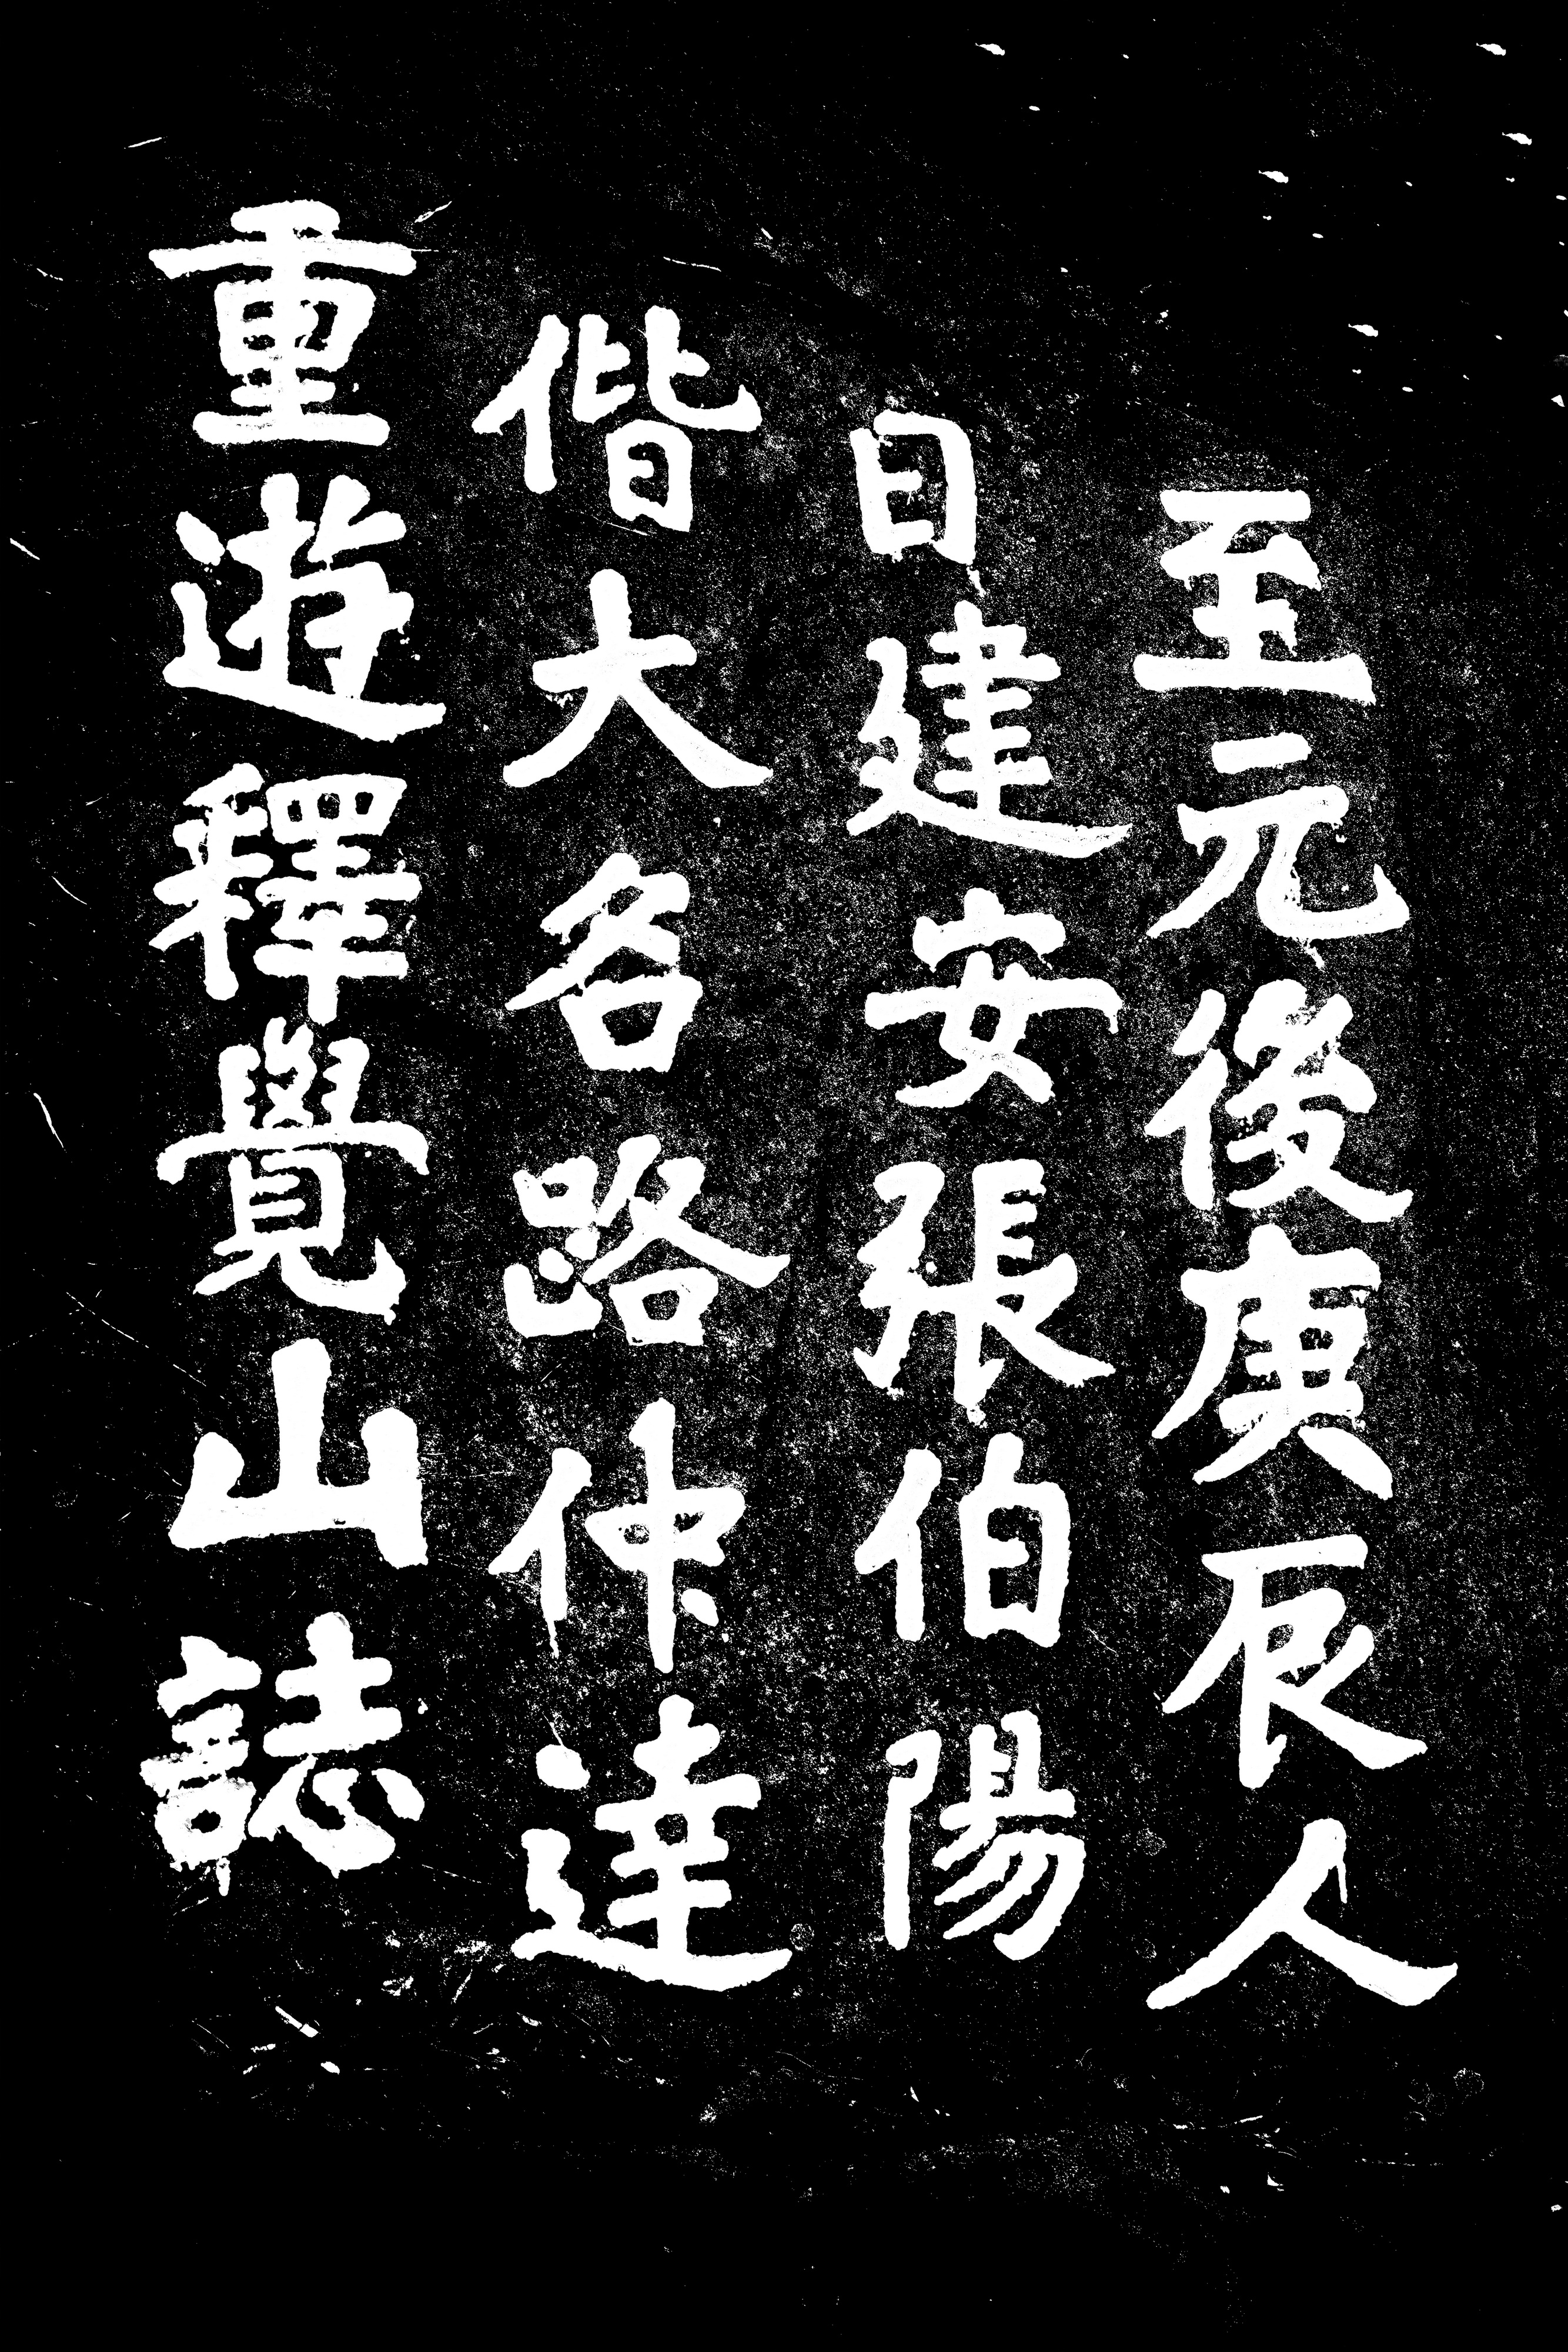 至元後庚辰人
日建安張伯陽
偕大名路仲達
重遊釋覺山誌